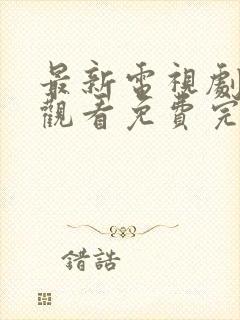 最新電視劇
觀看免費完
錯誥